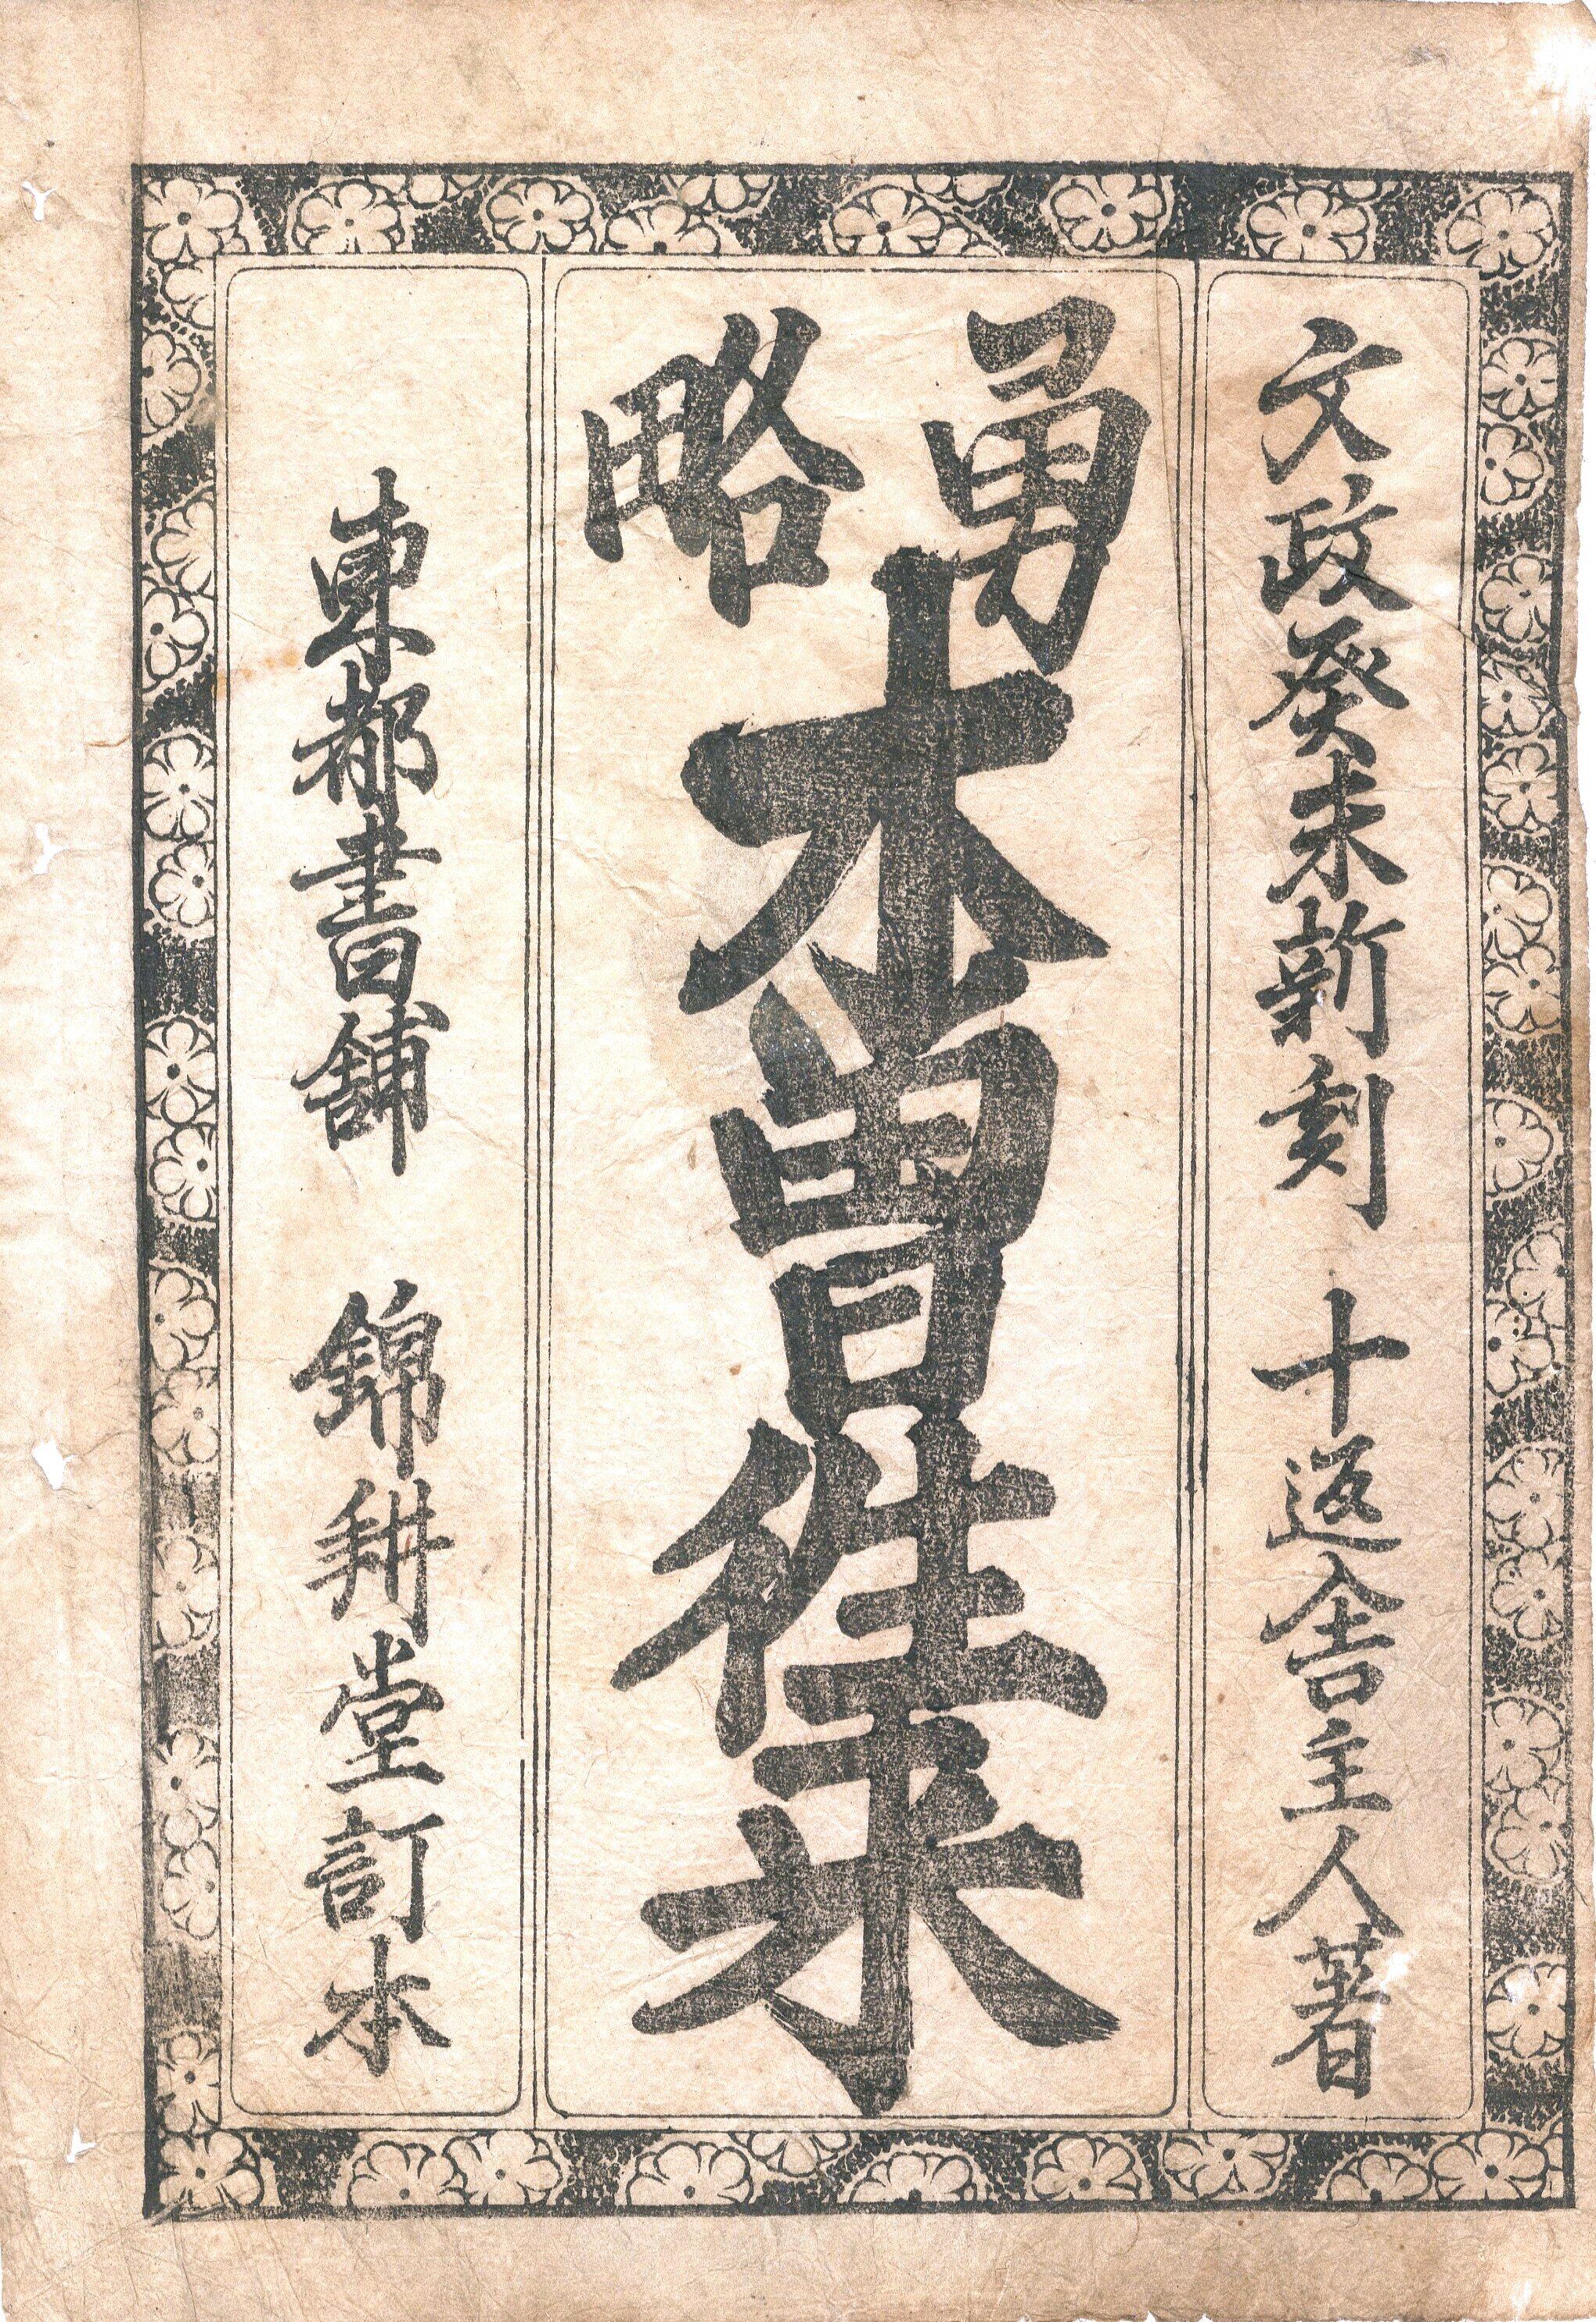 文政癸未新刻　十返舎主人著
勇略
木曽往来
東都書舗　錦耕堂訂本